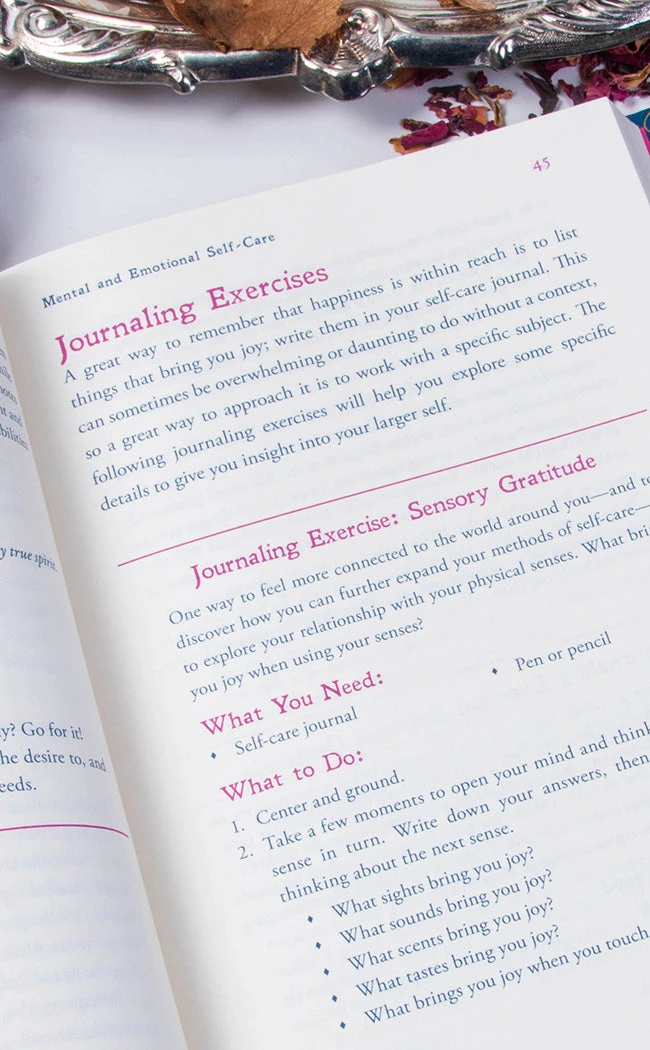 y true spirit.
y? Go for it!
he desire to, and
eeds.
45
Mental and Emotional Self-Care
Journaling Exercises
A great way to remember that happiness is within reach is to list
things that bring you joy; write them in your self-care journal. This
can sometimes be overwhelming or daunting to do without a context,
so a great way to approach it is to work with a specific subject. The
following journaling exercises will help you explore some specific
details to give you insight into your larger self.
Journaling Exercise: Sensory Gratitude
One way to feel more connected to the world around you—and to
discover how you can further expand your methods of self-care—
to explore your relationship with your physical senses. What bri
you joy when using your senses?
What You Need:
♦ Self-care journal
♦ Pen or pencil
What to Do:
1. Center and ground.
2. Take a few moments to open your mind and think
sense in turn. Write down your answers, then
thinking about the next sense.
♦ What sights bring you joy?
♦ What sounds bring you joy?
♦ What scents bring you joy?
♦ What tastes bring you joy?
♦ What brings you joy when you touch